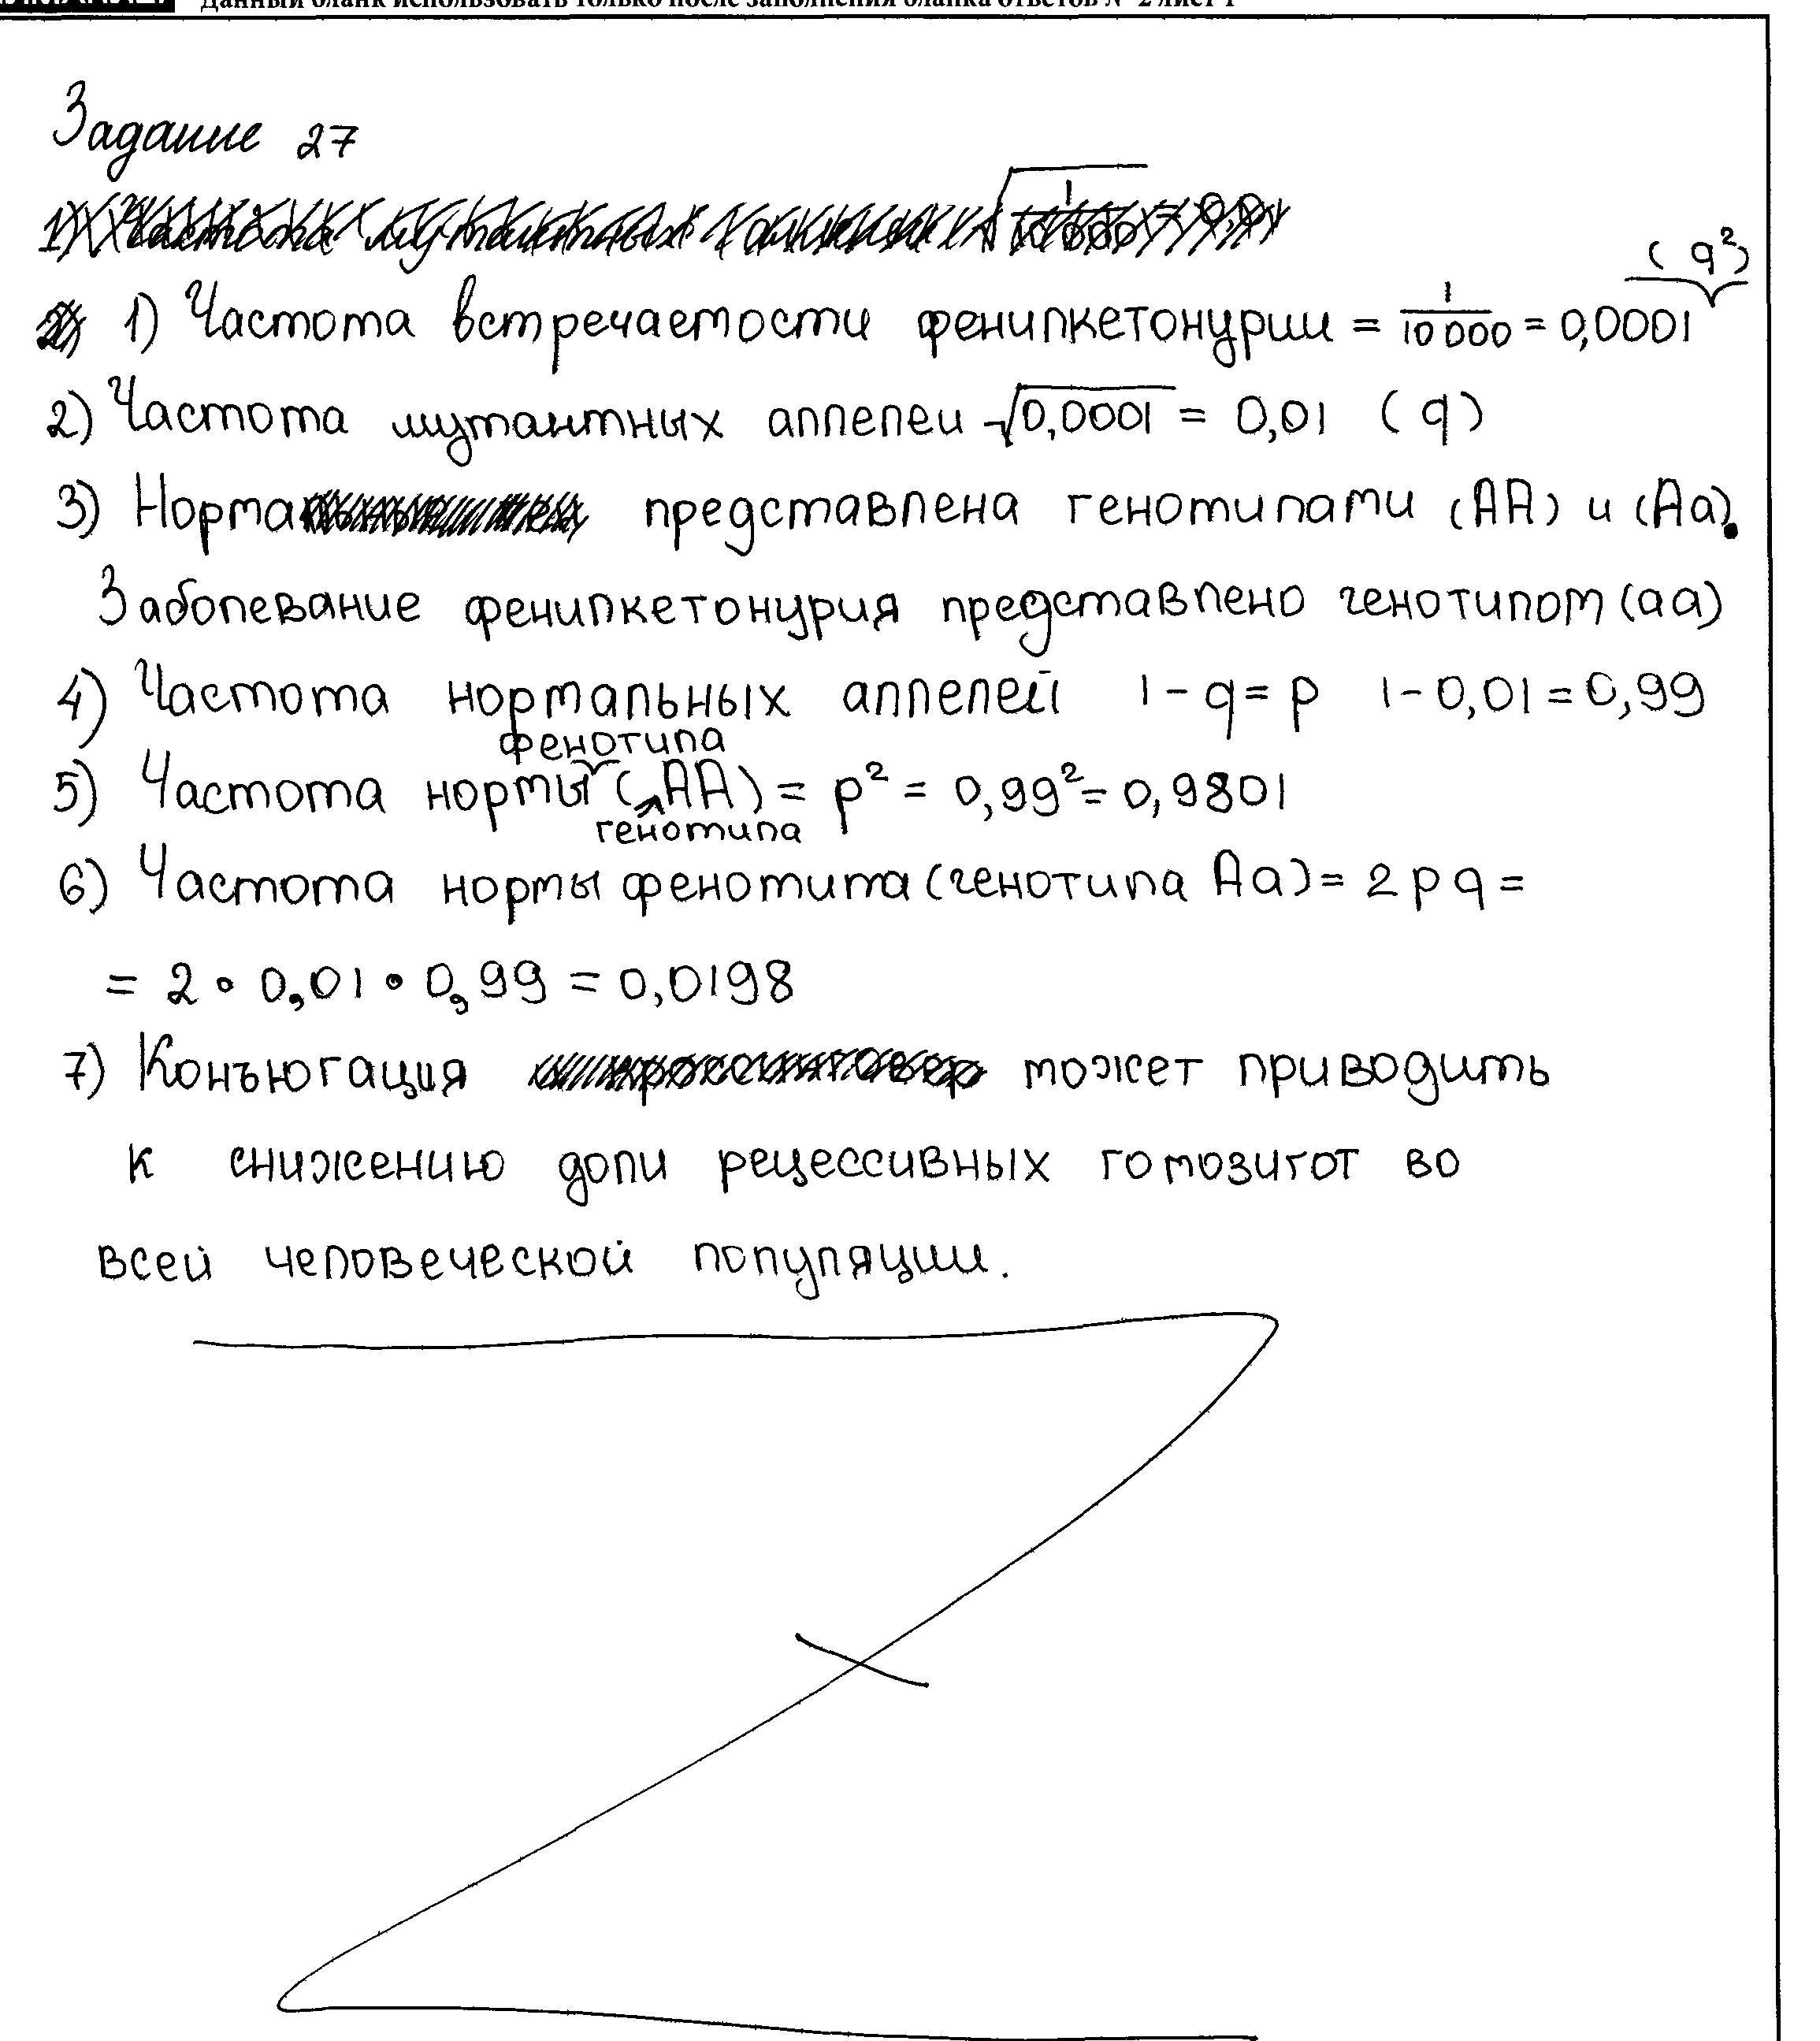 Данный бланк использовать только после заполнения бланка ответов № 2 лист 1
Задание 27
1) Частота встречаемости фенилкетонурии = 1/10 000 = 0,0001 (q²)
2) Частота мутантных аллелей √0,0001 = 0,01 (q)
3) Норма представлена генотипами (АА) и (Аа).
Заболевание фенилкетонурия представлено генотипом (аа)
4) Частота нормальных аллелей 1 - q = p 1 - 0,01 = 0,99
5) Частота нормы фенотипа (генотипа АА) = p² = 0,99² = 0,9801
6) Частота нормы фенотита (генотипа Аа) = 2 p q =
= 2 • 0,01 • 0,99 = 0,0198
7) Конъюгация может приводить
к снижению доли рецессивных гомозигот во
всей человеческой популяции.